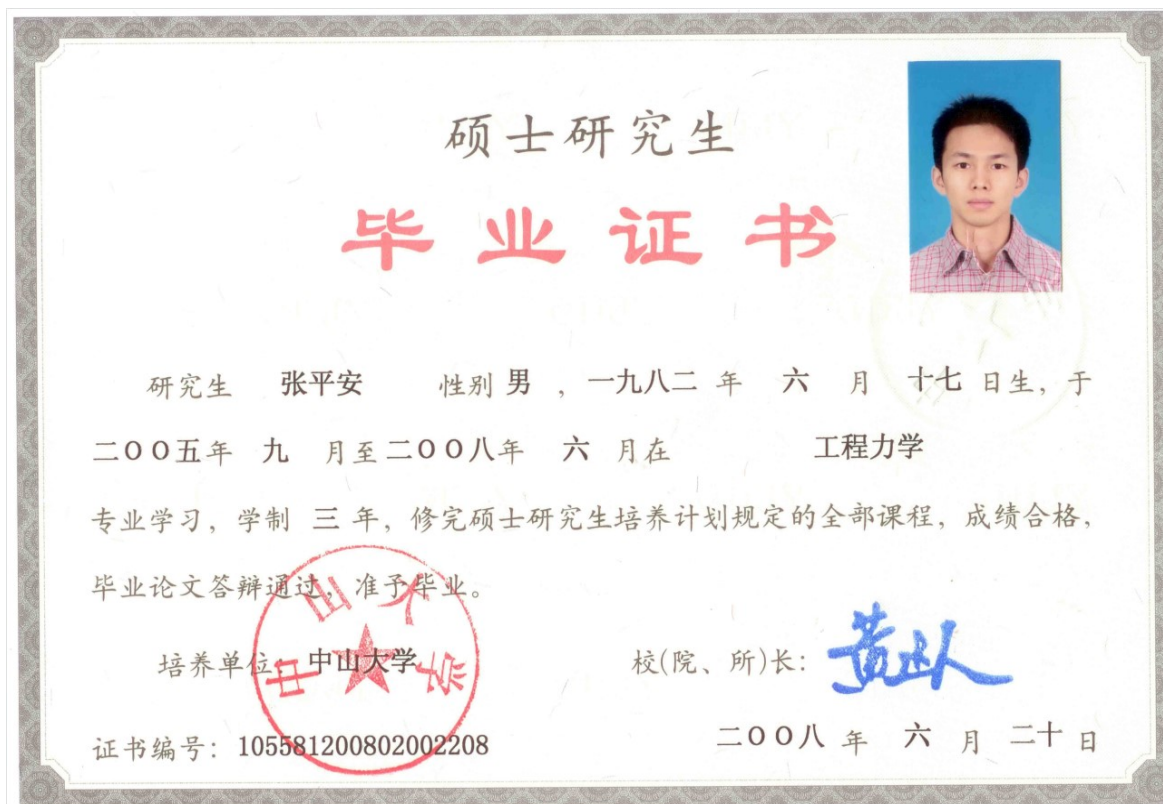 硕士研究生
毕业证书
研究生 张平安 性别 男 ,一九八二 年 六 月 十七 日生,于
二〇〇五年 九 月至二〇〇八年 六 月在 工程力学
专业学习,学制 三 年,修完硕士研究生培养计划规定的全部课程,成绩合格,
毕业论文答辩通过,准予毕业。
培养单位 中山大学
中山大学
校(院、所)长: 黄达人
证书编号: 105581200802002208
二〇〇八 年 六 月 二十 日